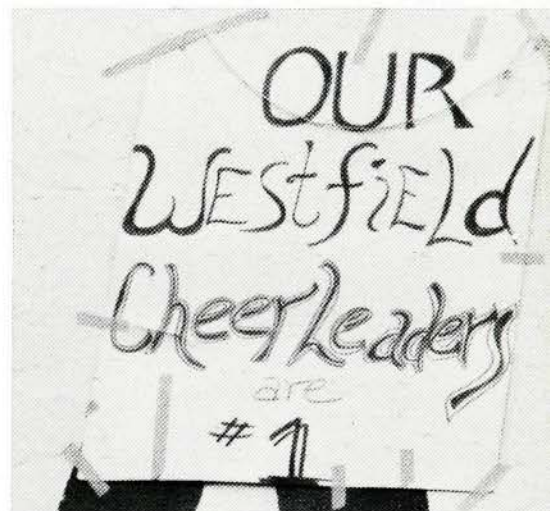 OUR
WEStfiELd
CheerLeaders
are
#1